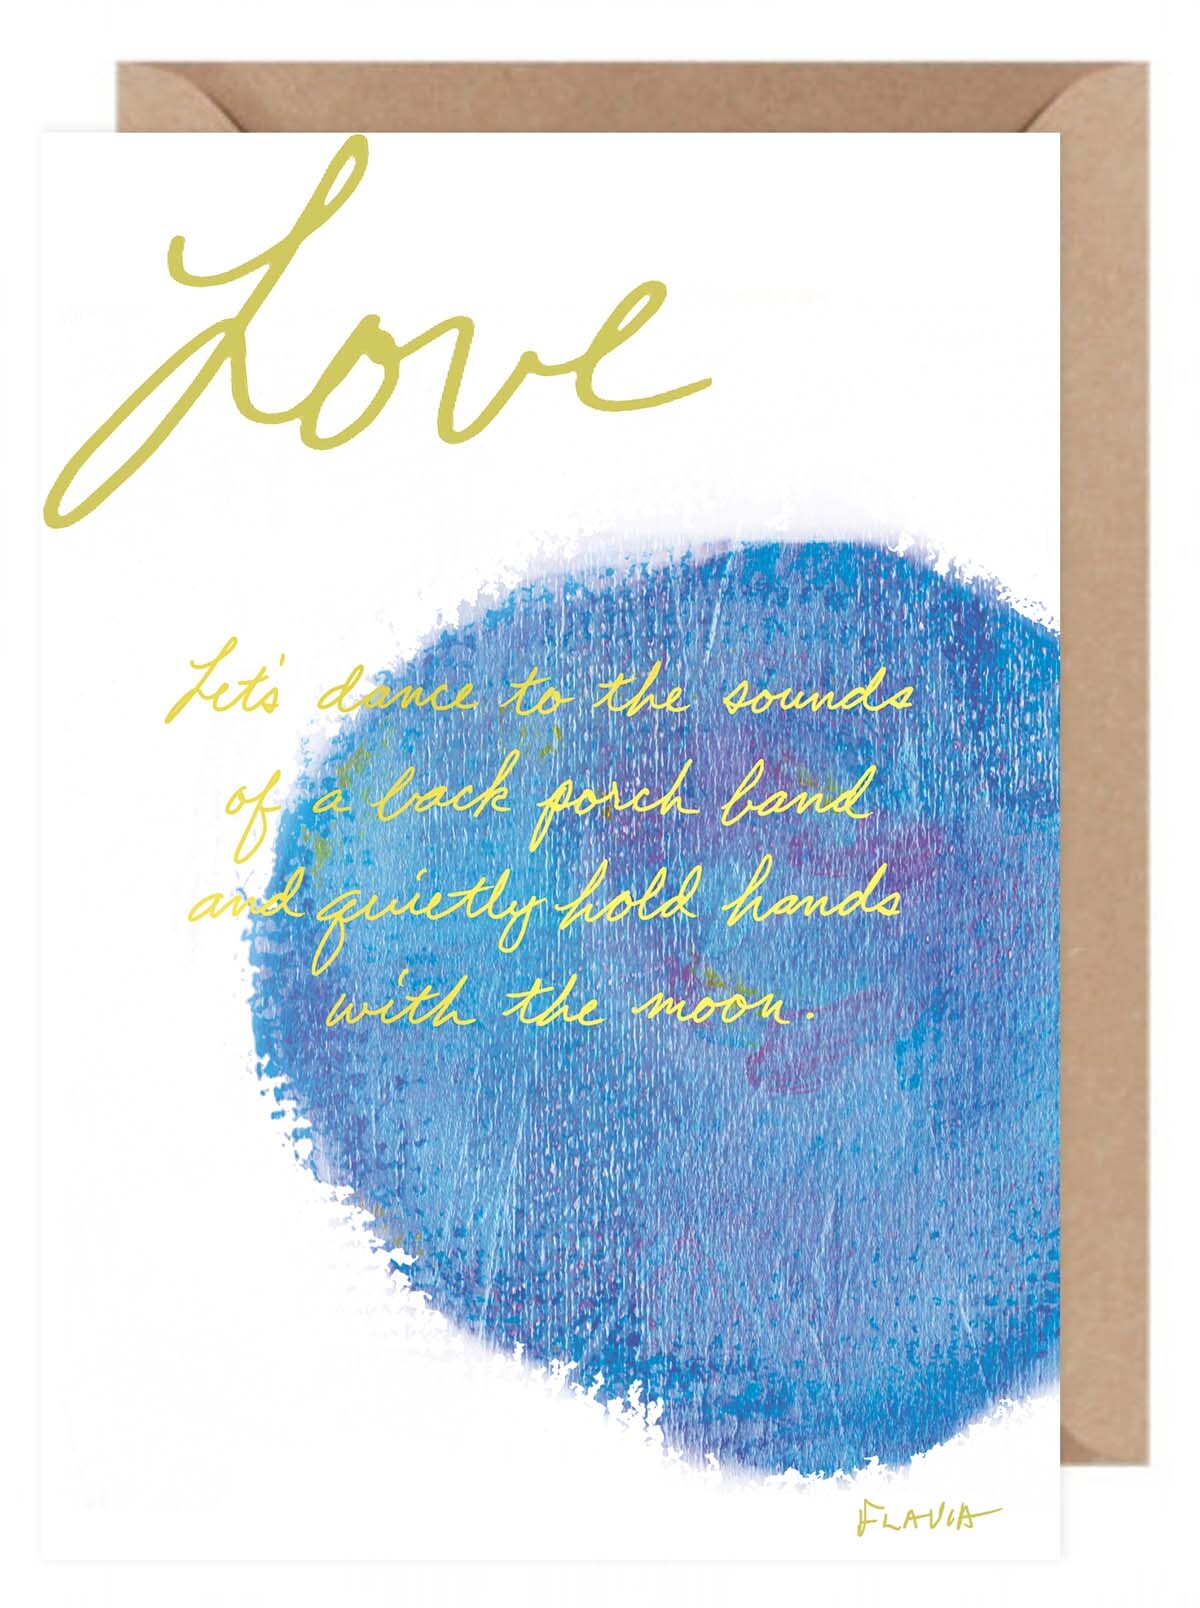 Love
Let's dance to the sounds
of a back porch band
and quietly hold hands
with the moon.
FLAVIA